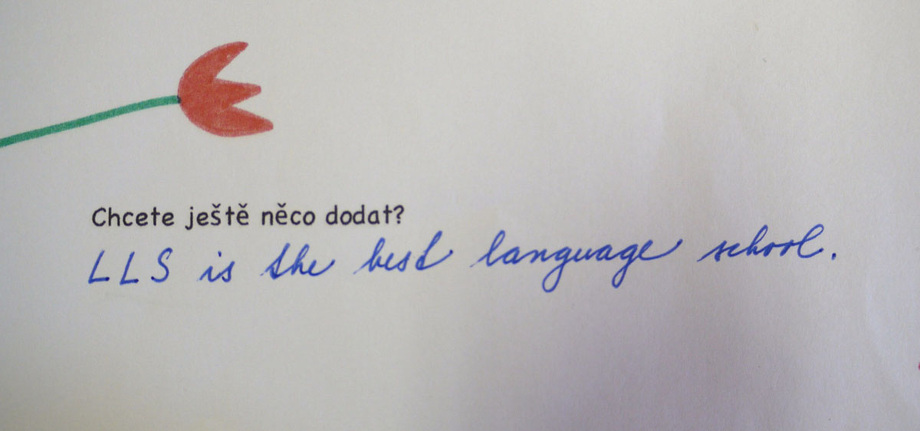 Chcete ještě něco dodat?
LLS is the best language school.